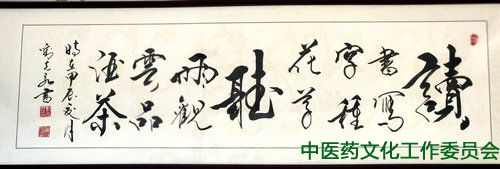 讀
書寫
字種
花草
聽
雨觀
雲品
酒茶
時在甲辰月
書
中医药文化工作委员会